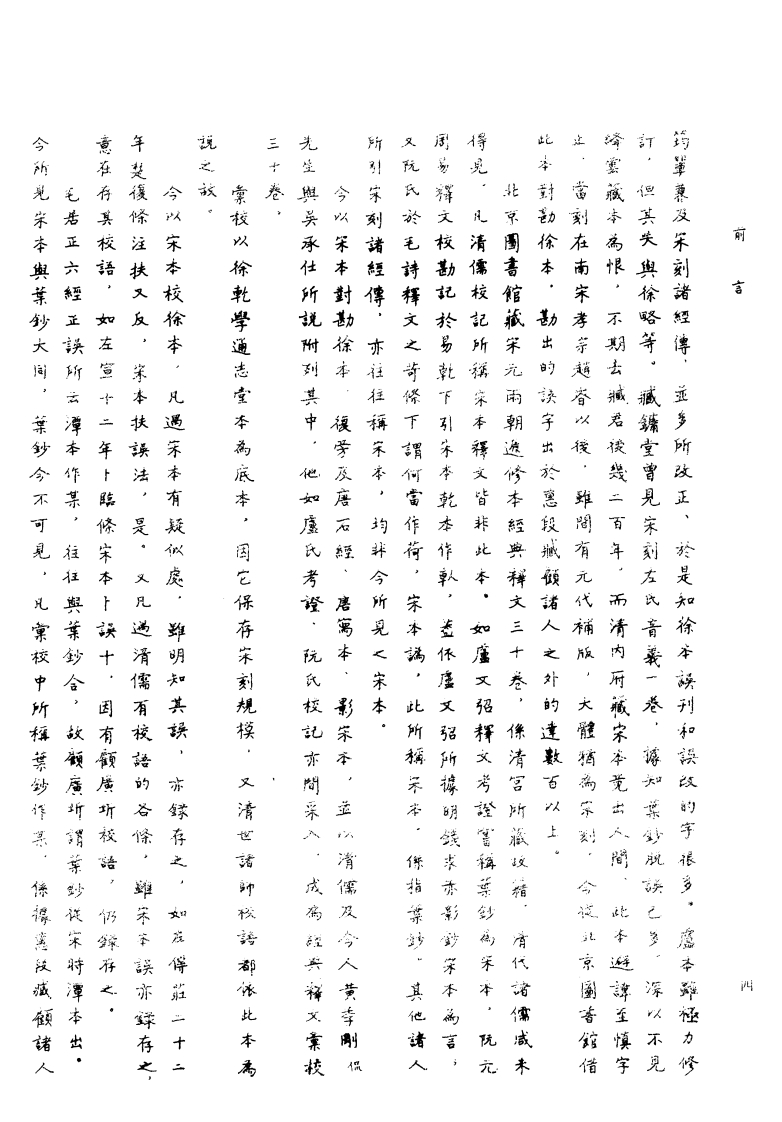 前言
四
筠輩兼及宋刻諸經傳，並多所改正、於是知徐本誤刊和誤改的字很多。盧本雖極力修
訂，但其失與徐略等。臧鏞堂曾見宋刻左氏音義一卷，據知葉鈔脫誤已多，深以不見
絳雲藏本為恨，不期去臧君後幾二百年，而清內府藏宋本竟出人間，此本避諱至慎字
止，當刻在南宋孝宗趙眘以後，雖間有元代補版，大體猶為宋刻，今從北京圖書館借
此本對勘徐本，勘出的誤字出於惠段臧顧諸人之外的達數百以上。
北京圖書館藏宋元兩朝遞修本經典釋文三十卷，係清宮所藏故籍，清代諸儒咸未
得見，凡清儒校記所稱宋本釋文皆非此本。如盧文弨釋文考證嘗稱葉鈔為宋本，阮元
周易釋文校勘記於易乾下引宋本乾本作乹，蓋依盧文弨所據明錢求赤影鈔宋本為言，
又阮氏於毛詩釋文之苛條下謂何當作荷，宋本譌，此所稱宋本，係指葉鈔。其他諸人
所引宋刻諸經傳，亦往往稱宋本，均非今所見之宋本。
今以宋本對勘徐本，復旁及唐石經、唐寫本、影宋本，並以清儒及今人黃季剛侃
先生與吳承仕所說附列其中，他如盧氏考證、阮氏校記亦間采入，成為經典釋文彙校
三十卷，
彙校以徐乾學通志堂本為底本，因它保存宋刻規模，又清世諸師校語都依此本為
說之故。
今以宋本校徐本，凡遇宋本有疑似處，雖明知其誤，亦錄存之，如左傳莊二十二
年楚復條注扶又反，宋本扶誤法，是。又凡遇清儒有校語的各條，雖宋本誤亦錄存之，
意在存其校語，如左宣十二年卜臨條宋本卜誤十，因有顧廣圻校語，仍錄存之。
毛居正六經正誤所云潭本作某，往往與葉鈔合，故顧廣圻謂葉鈔從宋時潭本出。
今所見宋本與葉鈔大同，葉鈔今不可見，凡彙校中所稱葉鈔作某，係據惠段臧顧諸人